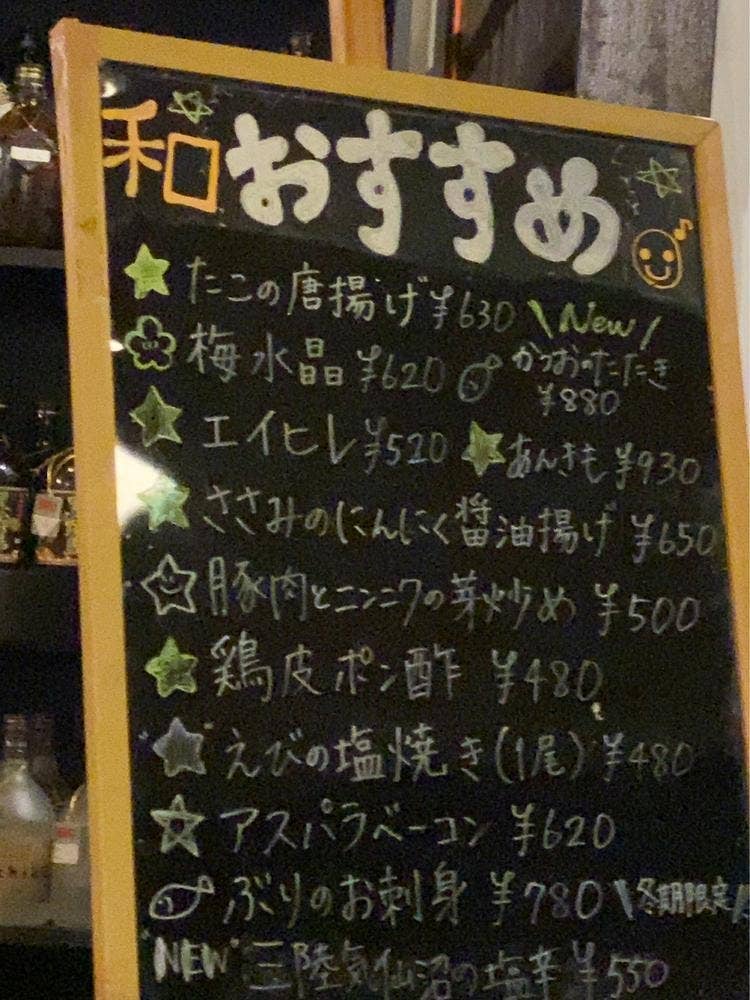 和 おすすめ
たこの唐揚げ ¥630 \New/
梅水晶 ¥620 かつおのたたき
¥880
エイヒレ ¥520 あんきも ¥930
ささみのにんにく醤油揚げ ¥650
豚肉とニンニクの芽炒め ¥500
鶏皮ポン酢 ¥480
えびの塩焼き(1尾) ¥480
アスパラベーコン ¥620
ぶりのお刺身 ¥780 \冬期限定/
"NEW" 三陸気仙沼の塩辛 ¥550